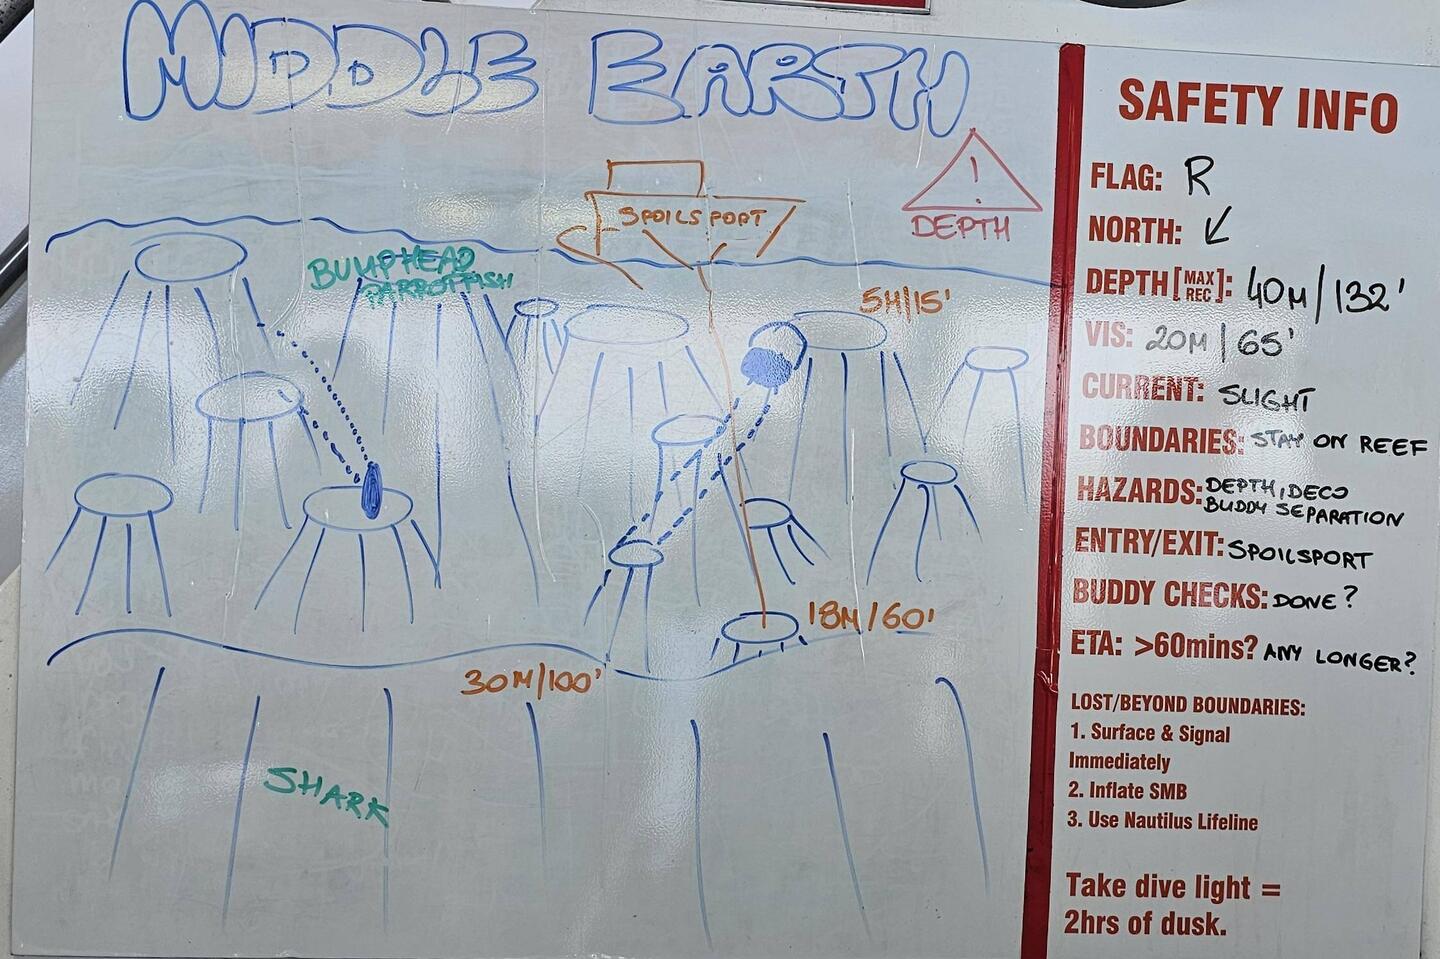 MIDDLE EARTH
SPOILSPORT
!
DEPTH
BUMPHEAD
PARROTFISH
5M/15'
18M/60'
30M/100'
SHARK
SAFETY INFO
FLAG: R
NORTH: ↙
DEPTH [MAX REC]: 40M/132'
VIS: 20M/65'
CURRENT: SLIGHT
BOUNDARIES: STAY ON REEF
HAZARDS: DEPTH, DECO
BUDDY SEPARATION
ENTRY/EXIT: SPOILSPORT
BUDDY CHECKS: DONE?
ETA: >60mins? ANY LONGER?
LOST/BEYOND BOUNDARIES:
1. Surface & Signal
Immediately
2. Inflate SMB
3. Use Nautilus Lifeline
Take dive light =
2hrs of dusk.